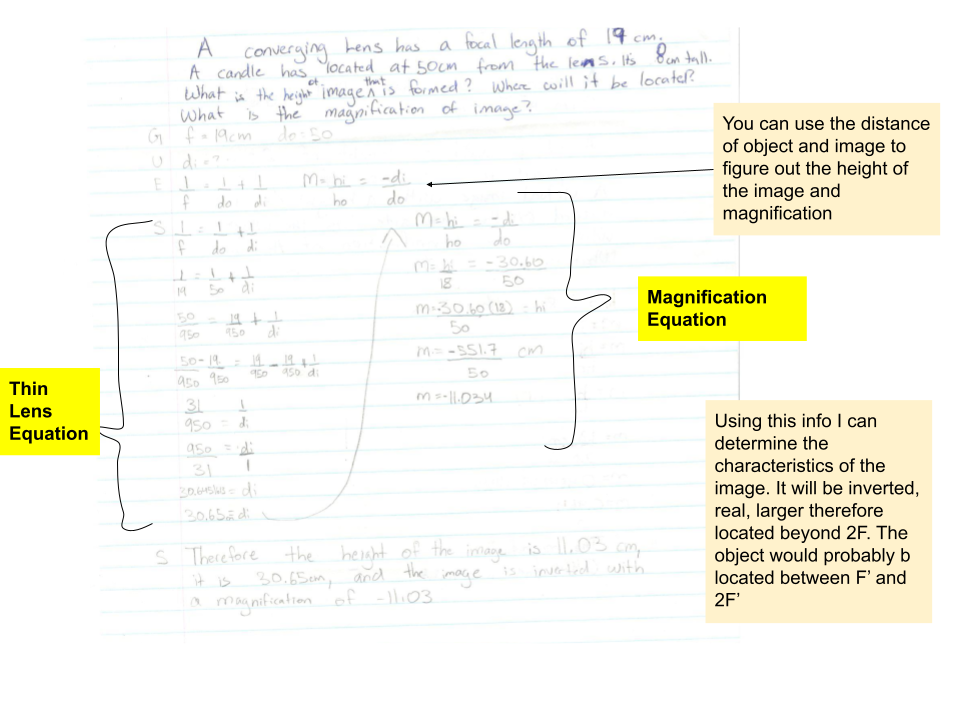 A converging Lens has a focal length of 19 cm.
A candle has located at 50cm from the lens. Its 8cm tall.
What is the height of image that is formed? Where will it be located?
What is the magnification of image?
G f = 19cm do = 50
U di = ?
E 1/f = 1/do + 1/di M = hi/ho = -di/do
S 1/f = 1/do + 1/di
1/19 = 1/50 + 1/di
50/950 = 19/950 + 1/di
50/950 - 19/950 = 19/950 - 19/950 + 1/di
31/950 = 1/di
950/31 = di/1
= di
30.65 = di
M = hi/ho = -di/do
m = hi/18 = -30.60/50
m = -30.60(18)/50 = hi
m = -551.7/50 cm
m = -11.034
S Therefore the height of the image is 11.03 cm,
it is 30.65cm, and the image is inverted with
a magnification of -11.03
You can use the distance
of object and image to
figure out the height of
the image and
magnification
Magnification
Equation
Thin
Lens
Equation
Using this info I can
determine the
characteristics of the
image. It will be inverted,
real, larger therefore
located beyond 2F. The
object would probably b
located between F’ and
2F’